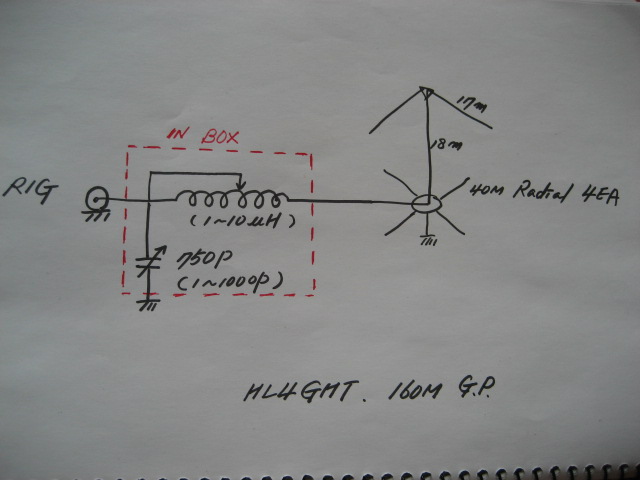 17m
IN BOX
18m
RIG
40M Radial 4EA
(1~10μH)
750P
(1~1000P)
HL4GHT. 160M G.P.